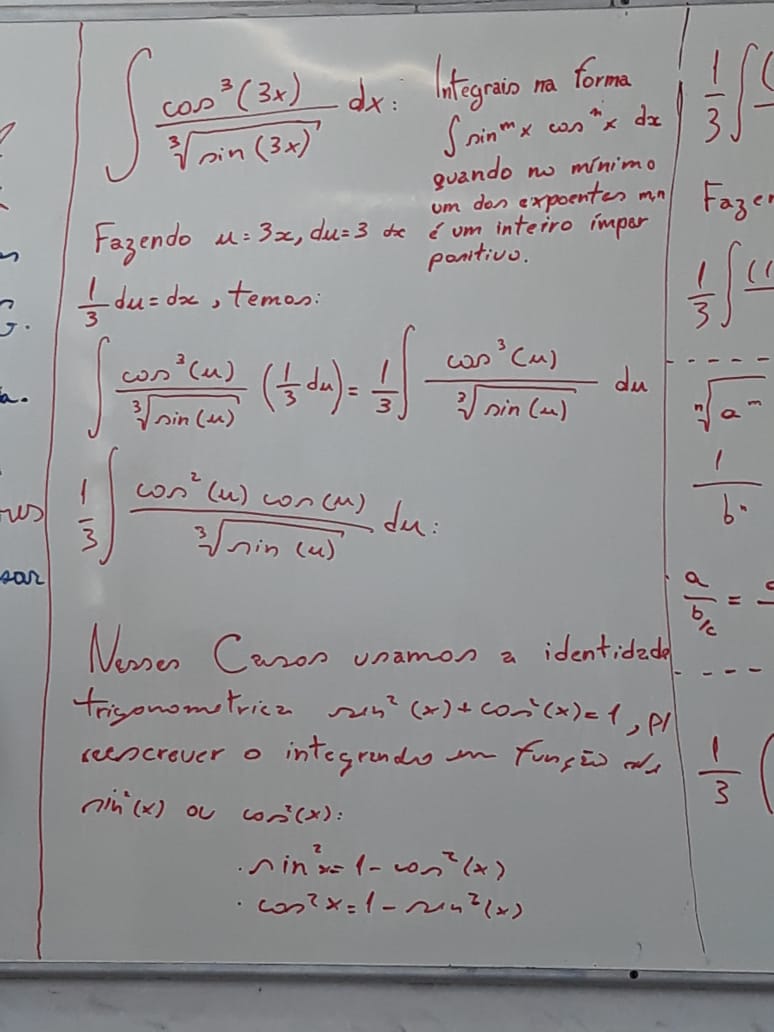 ∫ cos³(3x) / ∛sin(3x) dx:
Integrais na forma
∫ sinᵐx cosⁿx dx
quando no mínimo
um dos expoentes m,n
é um inteiro ímpar
positivo.
Fazendo u=3x, du=3 dx
1/3 du=dx, temos:
∫ cos³(u) / ∛sin(u) (1/3 du) = 1/3 ∫ cos³(u) / ∛sin(u) du
1/3 ∫ cos²(u) cos(u) / ∛sin(u) du:
Nesses Casos usamos a identidade
trigonometrica sin²(x)+cos²(x)=1, p/
reescrever o integrando em função de
sin²(x) ou cos²(x):
· sin²x=1-cos²(x)
· cos²x=1-sin²(x)
1/3 ∫ (
Fazen
1/3 ∫ ((1
ⁿ√aᵐ
1/bⁿ
a / b/c =
1/3 (
sar